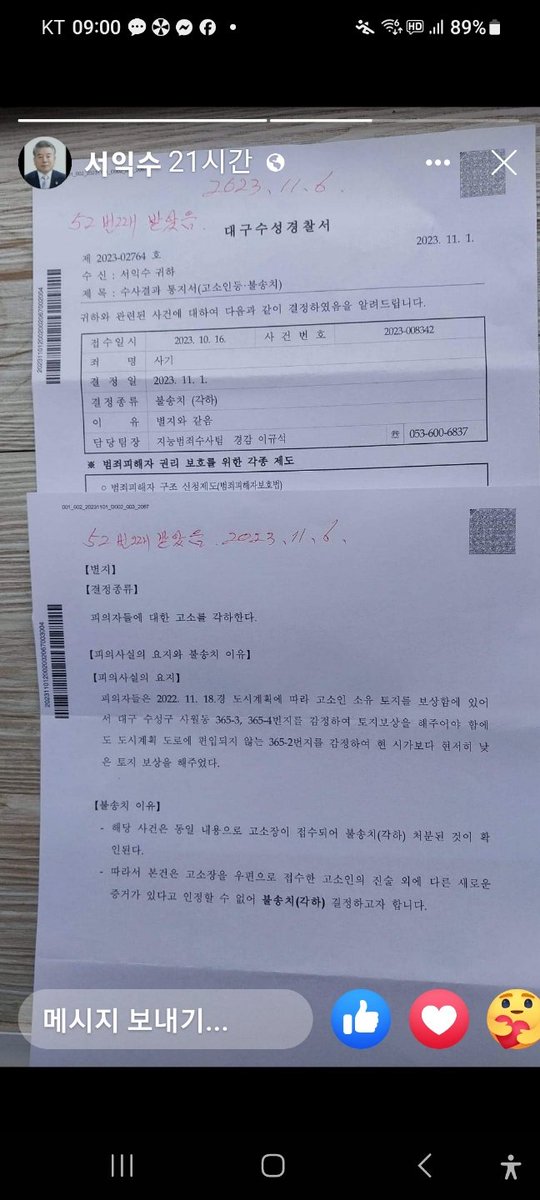 KT 09:00 89%
서익수 21시간
2023. 11. 6.
52 번째 받았음.
대구수성경찰서
2023. 11. 1.
제 2023-02764 호
수 신 : 서익수 귀하
제 목 : 수사결과 통지서(고소인등·불송치)
귀하와 관련된 사건에 대하여 다음과 같이 결정하였음을 알려드립니다.
접수일시 2023. 10. 16. 사 건 번 호 2023-008342
죄 명 사기
결 정 일 2023. 11. 1.
결정종류 불송치 (각하)
이 유 별지와 같음
담당팀장 지능범죄수사팀 경감 이규식 ☏ 053-600-6837
※ 범죄피해자 권리 보호를 위한 각종 제도
○ 범죄피해자 구조 신청제도(범죄피해자보호법)
52 번째 받았음. 2023. 11. 6.
【별지】
【결정종류】
피의자들에 대한 고소를 각하한다.
【피의사실의 요지와 불송치 이유】
【피의사실의 요지】
피의자들은 2022. 11. 18.경 도시계획에 따라 고소인 소유 토지를 보상함에 있어
서 대구 수성구 사월동 365-3, 365-4번지를 감정하여 토지보상을 해주이야 함에
도 도시계획 도로에 편입되지 않는 365-2번지를 감정하여 현 시가보다 현저히 낮
은 토지 보상을 해주었다.
【불송치 이유】
- 해당 사건은 동일 내용으로 고소장이 접수되어 불송치(각하) 처분된 것이 확
인된다.
- 따라서 본건은 고소장을 우편으로 접수한 고소인의 진술 외에 다른 새로운
증거가 있다고 인정할 수 없어 불송치(각하) 결정하고자 합니다.
메시지 보내기...